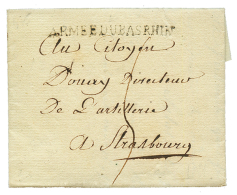 ARMEE DU BAS RHIN
Au Citoyen
Douay Directeur
De L'artillerie
a Strasbourg